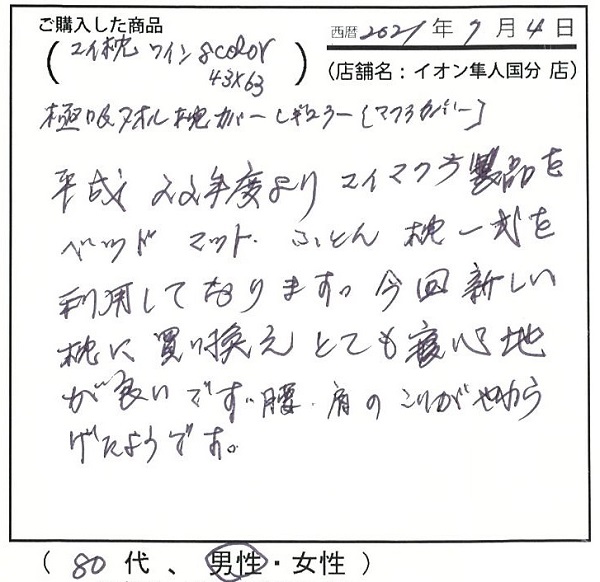 ご購入した商品
西暦 2021年 9月 4日
(エイ枕 ワイン 8color
43×63 )
(店舗名：イオン隼人国分 店)
極吸タオル枕カバー レギュラー[マクラカバー]
平成 22年度より エイマクラ製品を
ベッド マット. ふとん 枕 一式を
利用しております。今回新しい
枕に買い換えとても寝心地
が良いです。腰.肩のこりがやわら
げたようです。
( 80 代、男性・女性 )